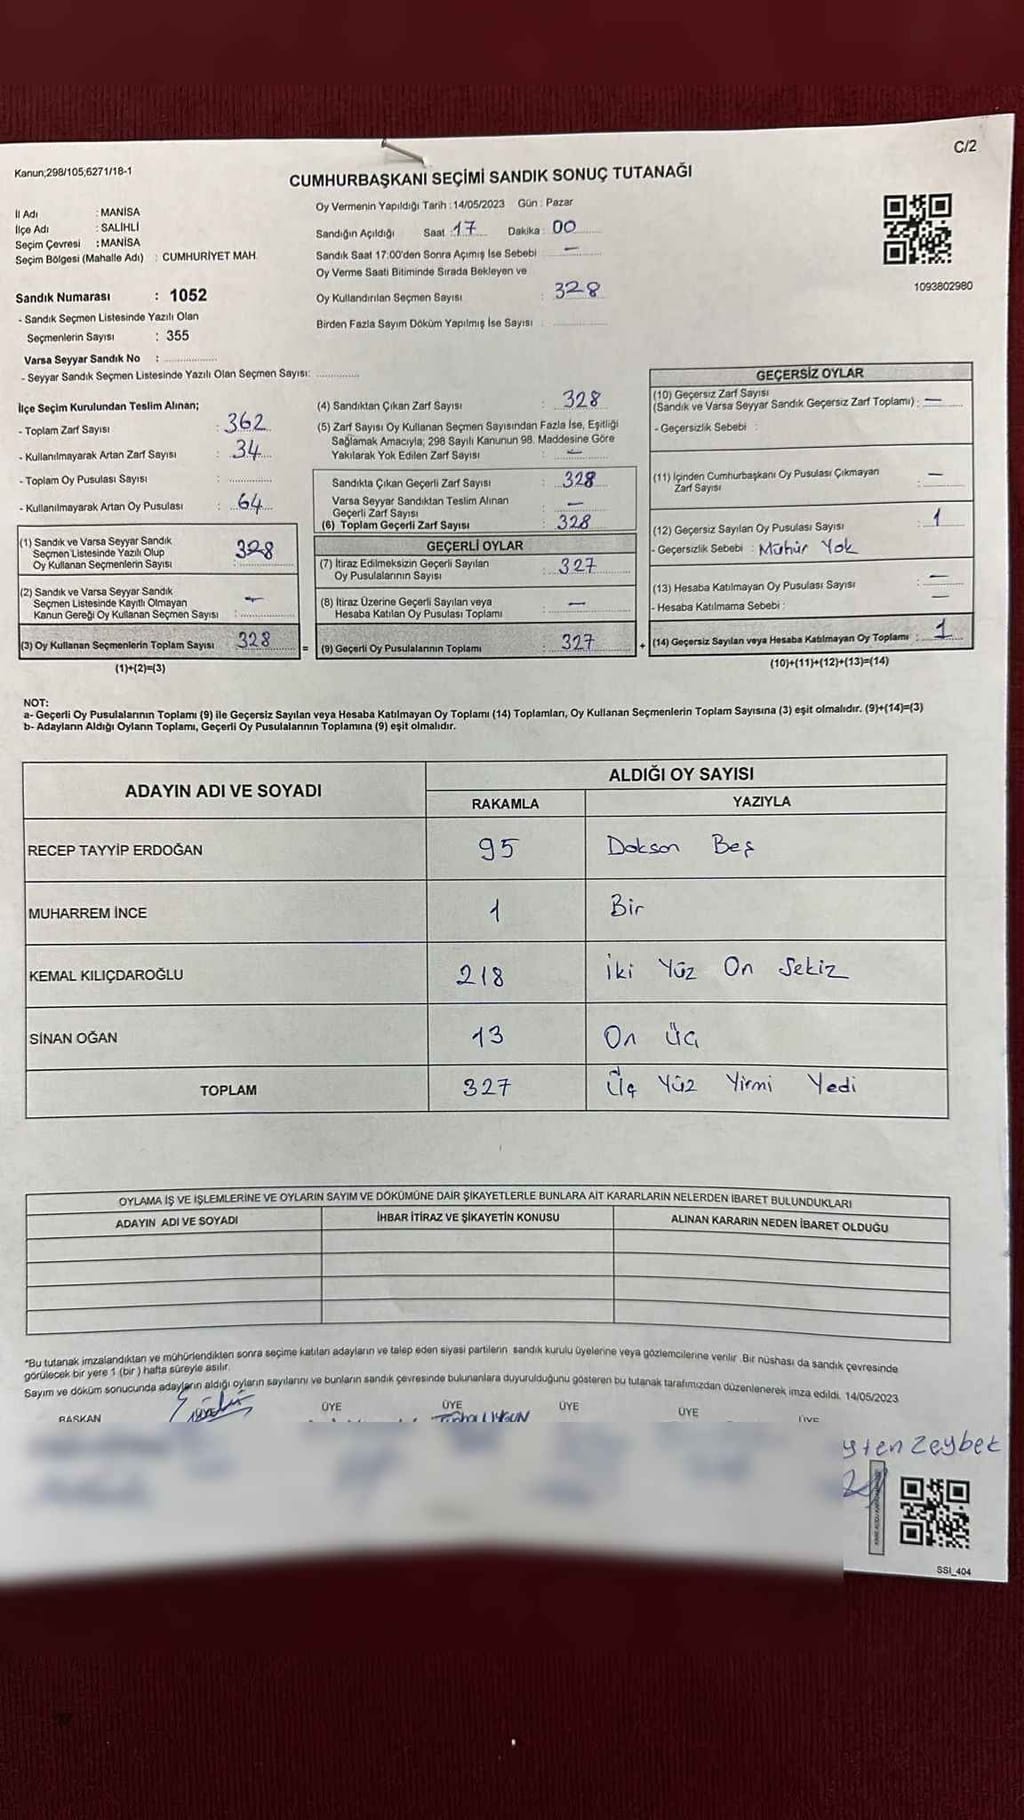 C/2
Kanun;298/105;6271/18-1
CUMHURBAŞKANI SEÇİMİ SANDIK SONUÇ TUTANAĞI
İl Adı : MANİSA
İlçe Adı : SALİHLİ
Seçim Çevresi : MANİSA
Seçim Bölgesi (Mahalle Adı) : CUMHURİYET MAH.
Sandık Numarası : 1052
- Sandık Seçmen Listesinde Yazılı Olan
Seçmenlerin Sayısı : 355
Varsa Seyyar Sandık No :
- Seyyar Sandık Seçmen Listesinde Yazılı Olan Seçmen Sayısı:
Oy Vermenin Yapıldığı Tarih : 14/05/2023 Gün : Pazar
Sandığın Açıldığı Saat : 17 Dakika : 00
Sandık Saat 17:00'den Sonra Açımış İse Sebebi —
Oy Verme Saati Bitiminde Sırada Bekleyen ve
Oy Kullandırılan Seçmen Sayısı : 328
Birden Fazla Sayım Döküm Yapılmış İse Sayısı :
1093802980
İlçe Seçim Kurulundan Teslim Alınan;
- Toplam Zarf Sayısı : 362
- Kullanılmayarak Artan Zarf Sayısı : 34
- Toplam Oy Pusulası Sayısı :
- Kullanılmayarak Artan Oy Pusulası : 64
(1) Sandık ve Varsa Seyyar Sandık
Seçmen Listesinde Yazılı Olup
Oy Kullanan Seçmenlerin Sayısı : 328
(2) Sandık ve Varsa Seyyar Sandık
Seçmen Listesinde Kayıtlı Olmayan
Kanun Gereği Oy Kullanan Seçmen Sayısı : —
(3) Oy Kullanan Seçmenlerin Toplam Sayısı 328 =
(1)+(2)=(3)
(4) Sandıktan Çıkan Zarf Sayısı : 328
(5) Zarf Sayısı Oy Kullanan Seçmen Sayısından Fazla İse, Eşitliği
Sağlamak Amacıyla; 298 Sayılı Kanunun 98. Maddesine Göre
Yakılarak Yok Edilen Zarf Sayısı : —
Sandıkta Çıkan Geçerli Zarf Sayısı : 328
Varsa Seyyar Sandıktan Teslim Alınan
Geçerli Zarf Sayısı : —
(6) Toplam Geçerli Zarf Sayısı : 328
GEÇERLİ OYLAR
(7) İtiraz Edilmeksizin Geçerli Sayılan
Oy Pusulalarının Sayısı : 327
(8) İtiraz Üzerine Geçerli Sayılan veya
Hesaba Katılan Oy Pusulası Toplamı : —
(9) Geçerli Oy Pusulalarının Toplamı : 327 +
GEÇERSİZ OYLAR
(10) Geçersiz Zarf Sayısı
(Sandık ve Varsa Seyyar Sandık Geçersiz Zarf Toplamı) : —
- Geçersizlik Sebebi :
(11) İçinden Cumhurbaşkanı Oy Pusulası Çıkmayan
Zarf Sayısı : —
(12) Geçersiz Sayılan Oy Pusulası Sayısı : 1
- Geçersizlik Sebebi : Mühür Yok
(13) Hesaba Katılmayan Oy Pusulası Sayısı : —
- Hesaba Katılmama Sebebi : —
(14) Geçersiz Sayılan veya Hesaba Katılmayan Oy Toplamı : 1
(10)+(11)+(12)+(13)=(14)
NOT:
a- Geçerli Oy Pusulalarının Toplamı (9) ile Geçersiz Sayılan veya Hesaba Katılmayan Oy Toplamı (14) Toplamları, Oy Kullanan Seçmenlerin Toplam Sayısına (3) eşit olmalıdır. (9)+(14)=(3)
b- Adayların Aldığı Oyların Toplamı, Geçerli Oy Pusulalarının Toplamına (9) eşit olmalıdır.
ADAYIN ADI VE SOYADI
ALDIĞI OY SAYISI
RAKAMLA YAZIYLA
RECEP TAYYİP ERDOĞAN 95 Doksan Beş
MUHARREM İNCE 1 Bir
KEMAL KILIÇDAROĞLU 218 İki Yüz On Sekiz
SİNAN OĞAN 13 On Üç
TOPLAM 327 Üç Yüz Yirmi Yedi
OYLAMA İŞ VE İŞLEMLERİNE VE OYLARIN SAYIM VE DÖKÜMÜNE DAİR ŞİKAYETLERLE BUNLARA AİT KARARLARIN NELERDEN İBARET BULUNDUKLARI
ADAYIN ADI VE SOYADI İHBAR İTİRAZ VE ŞİKAYETİN KONUSU ALINAN KARARIN NEDEN İBARET OLDUĞU
*Bu tutanak imzalandıktan ve mühürlendikten sonra seçime katılan adayların ve talep eden siyasi partilerin sandık kurulu üyelerine veya gözlemcilerine verilir. Bir nüshası da sandık çevresinde
görülecek bir yere 1 (bir) hafta süreyle asılır.
Sayım ve döküm sonucunda adayların aldığı oyların sayılarını ve bunların sandık çevresinde bulunanlara duyurulduğunu gösteren bu tutanak tarafımızdan düzenlenerek imza edildi. 14/05/2023
BAŞKAN ÜYE ÜYE ÜYE ÜYE ÜYE
Zeybek
SSI_404